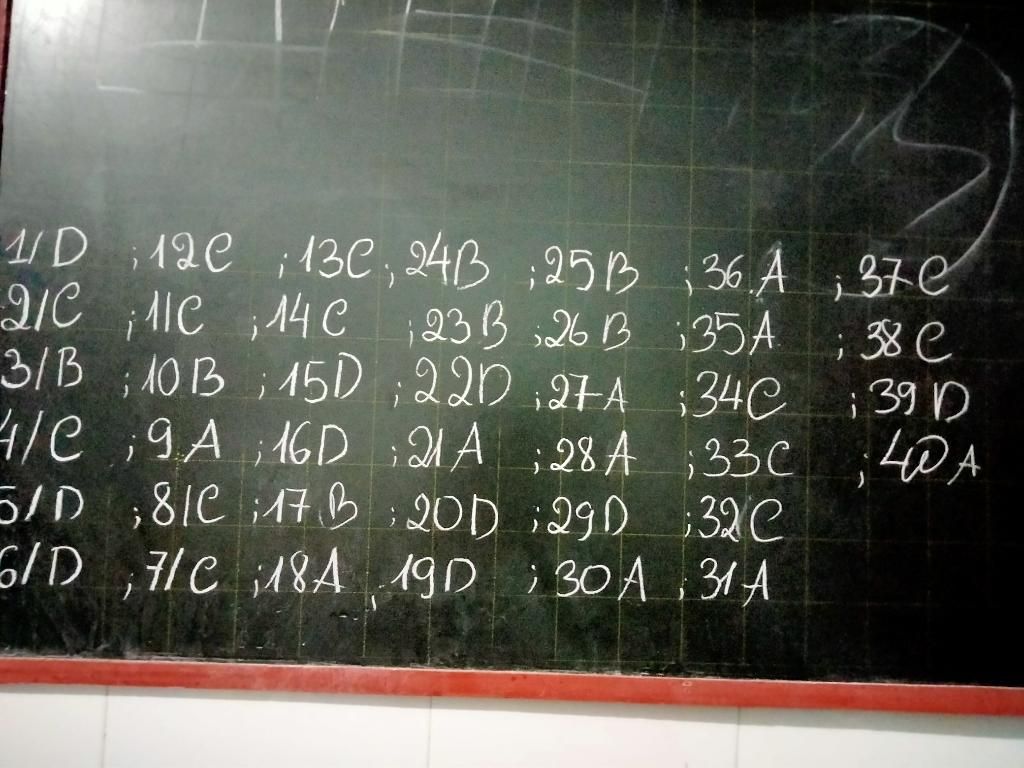 1/D ; 12C ; 13C ; 24B ; 25B ; 36.A ; 37C
2/C ; 11C ; 14C ; 23B ; 26B ; 35A ; 38C
3/B ; 10B ; 15D ; 22D ; 27A ; 34C ; 39D
4/C ; 9A ; 16D ; 21A ; 28A ; 33C ; 40A
5/D ; 8/C ; 17B ; 20D ; 29D ; 32C
6/D ; 7/C ; 18A , 19D ; 30A ; 31A